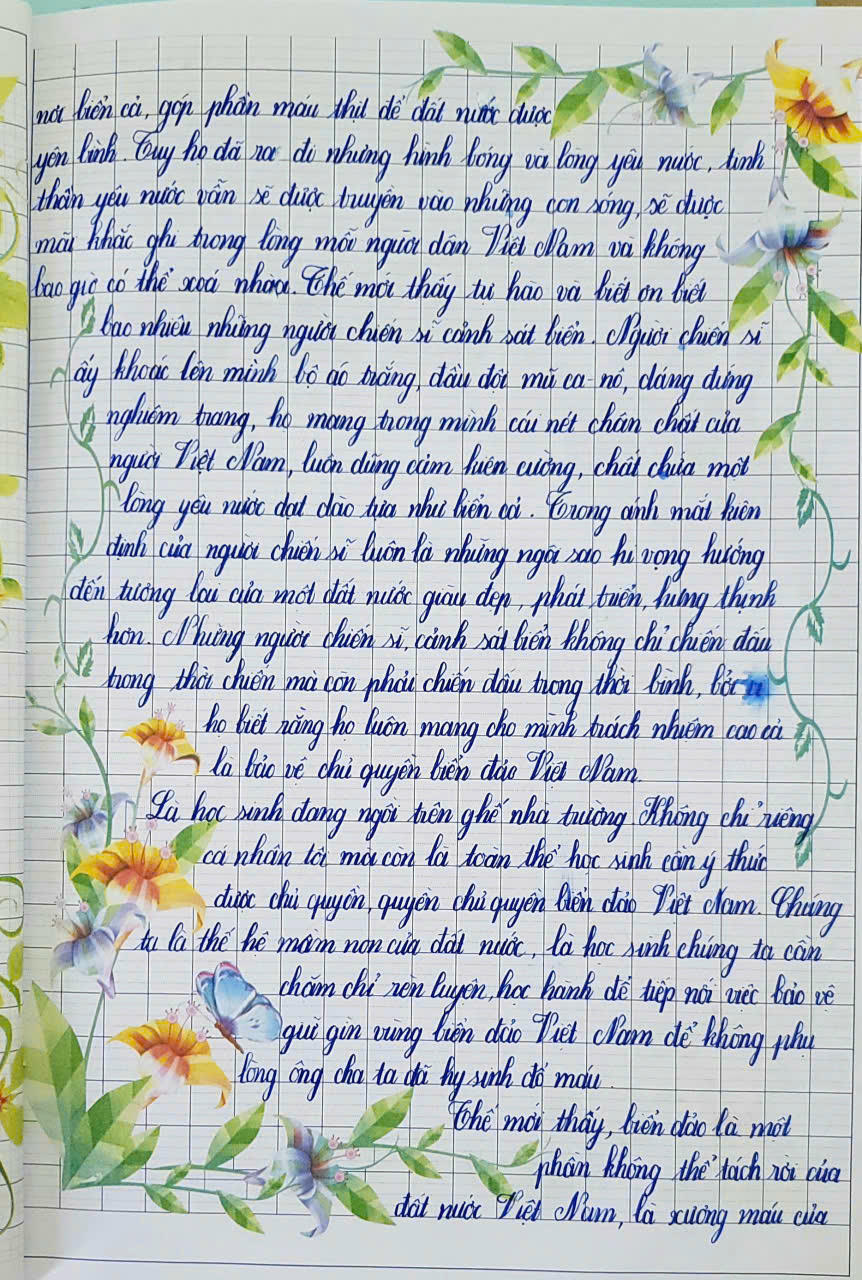 nơi biển cả, góp phần máu thịt để đất nước được
yên bình. Tuy họ đã ra đi nhưng hình bóng và lòng yêu nước, tinh
thần yêu nước vẫn sẽ được truyền vào những con sóng, sẽ được
mãi khắc ghi trong lòng mỗi người dân Việt Nam và không
bao giờ có thể xoá nhoà. Thế mới thấy tự hào và biết ơn biết
bao nhiêu những người chiến sĩ cảnh sát biển. Người chiến sĩ
ấy khoác lên mình bộ áo trắng, đầu đội mũ ca-nô, dáng đứng
nghiêm trang, họ mang trong mình cái nét chân chất của
người Việt Nam, luôn dũng cảm kiên cường, chất chứa một
lòng yêu nước dạt dào tựa như biển cả. Trong ánh mắt kiên
định của người chiến sĩ luôn là những ngôi sao hi vọng hướng
đến tương lai của một đất nước giàu đẹp, phát triển, hưng thịnh
hơn. Những người chiến sĩ, cảnh sát biển không chỉ chiến đấu
trong thời chiến mà còn phải chiến đấu trong thời bình, bởi
họ biết rằng họ luôn mang cho mình trách nhiệm cao cả
là bảo vệ chủ quyền biển đảo Việt Nam.
Là học sinh đang ngồi trên ghế nhà trường. Không chỉ riêng
cá nhân tôi mà còn là toàn thể học sinh cần ý thức
được chủ quyền, quyền chủ quyền biển đảo Việt Nam. Chúng
ta là thế hệ mầm non của đất nước, là học sinh chúng ta cần
chăm chỉ rèn luyện, học hành để tiếp nối việc bảo vệ
giữ gìn vùng biển đảo Việt Nam để không phụ
lòng ông cha ta đã hy sinh đổ máu.
Thế mới thấy, biển đảo là một
phần không thể tách rời của
đất nước Việt Nam, là xương máu của